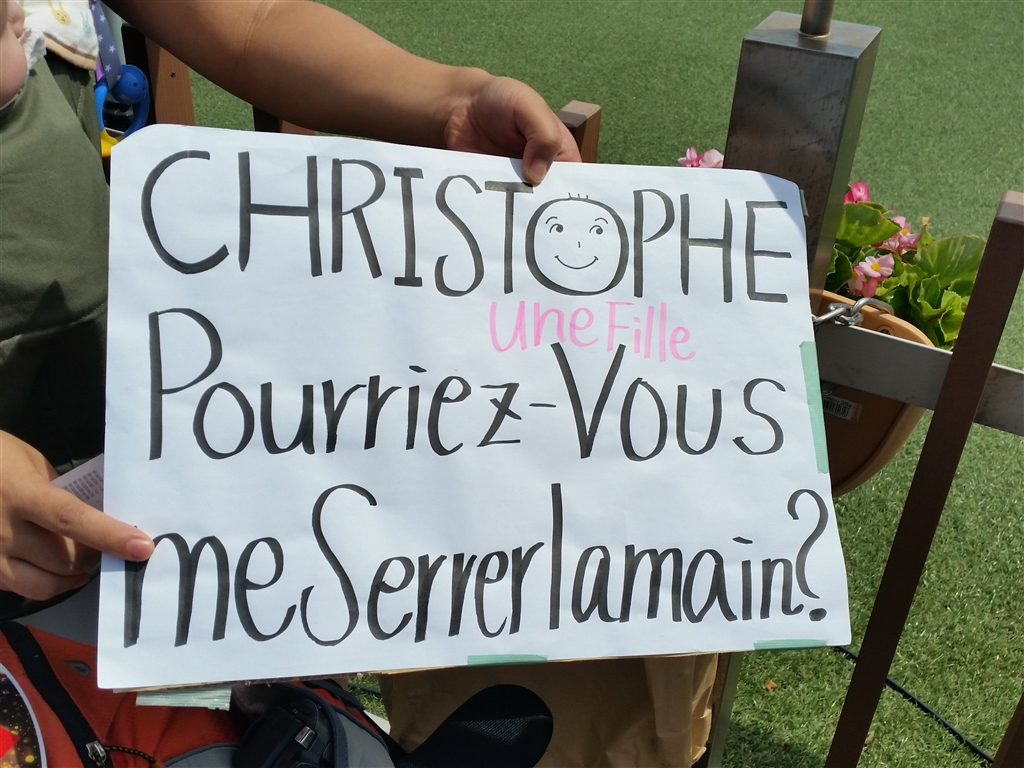 CHRISTOPHE
Une Fille
Pourriez-Vous
me Serrer la main?